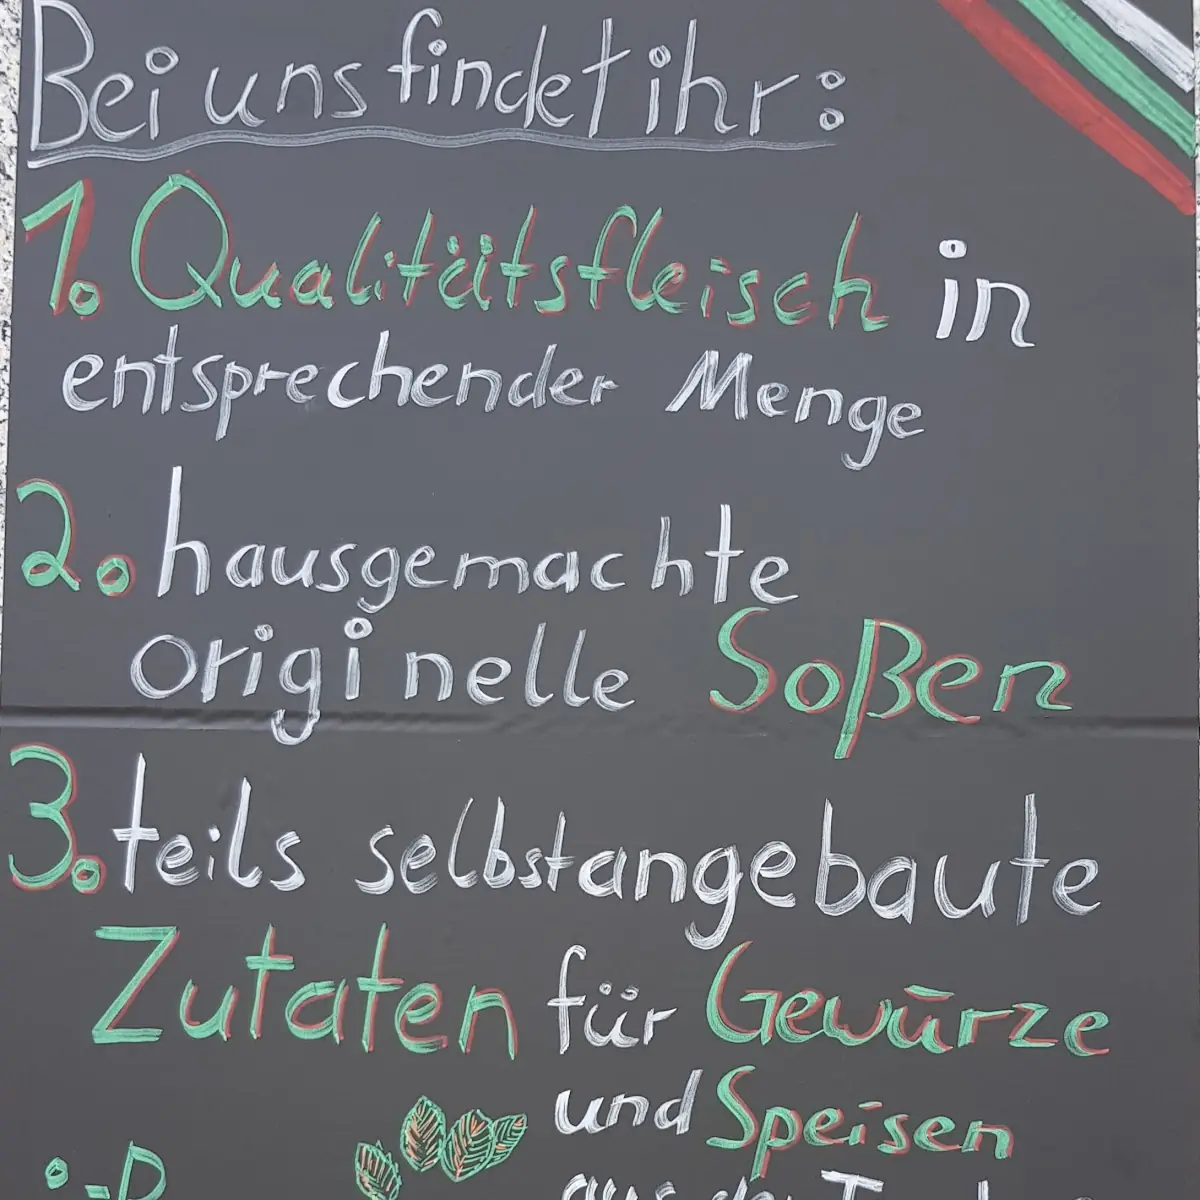 Bei uns findet ihr:
1. Qualitätsfleisch in
entsprechender Menge
2. hausgemachte
originelle Soßen
3. teils selbstangebaute
Zutaten für Gewürze
und Speisen